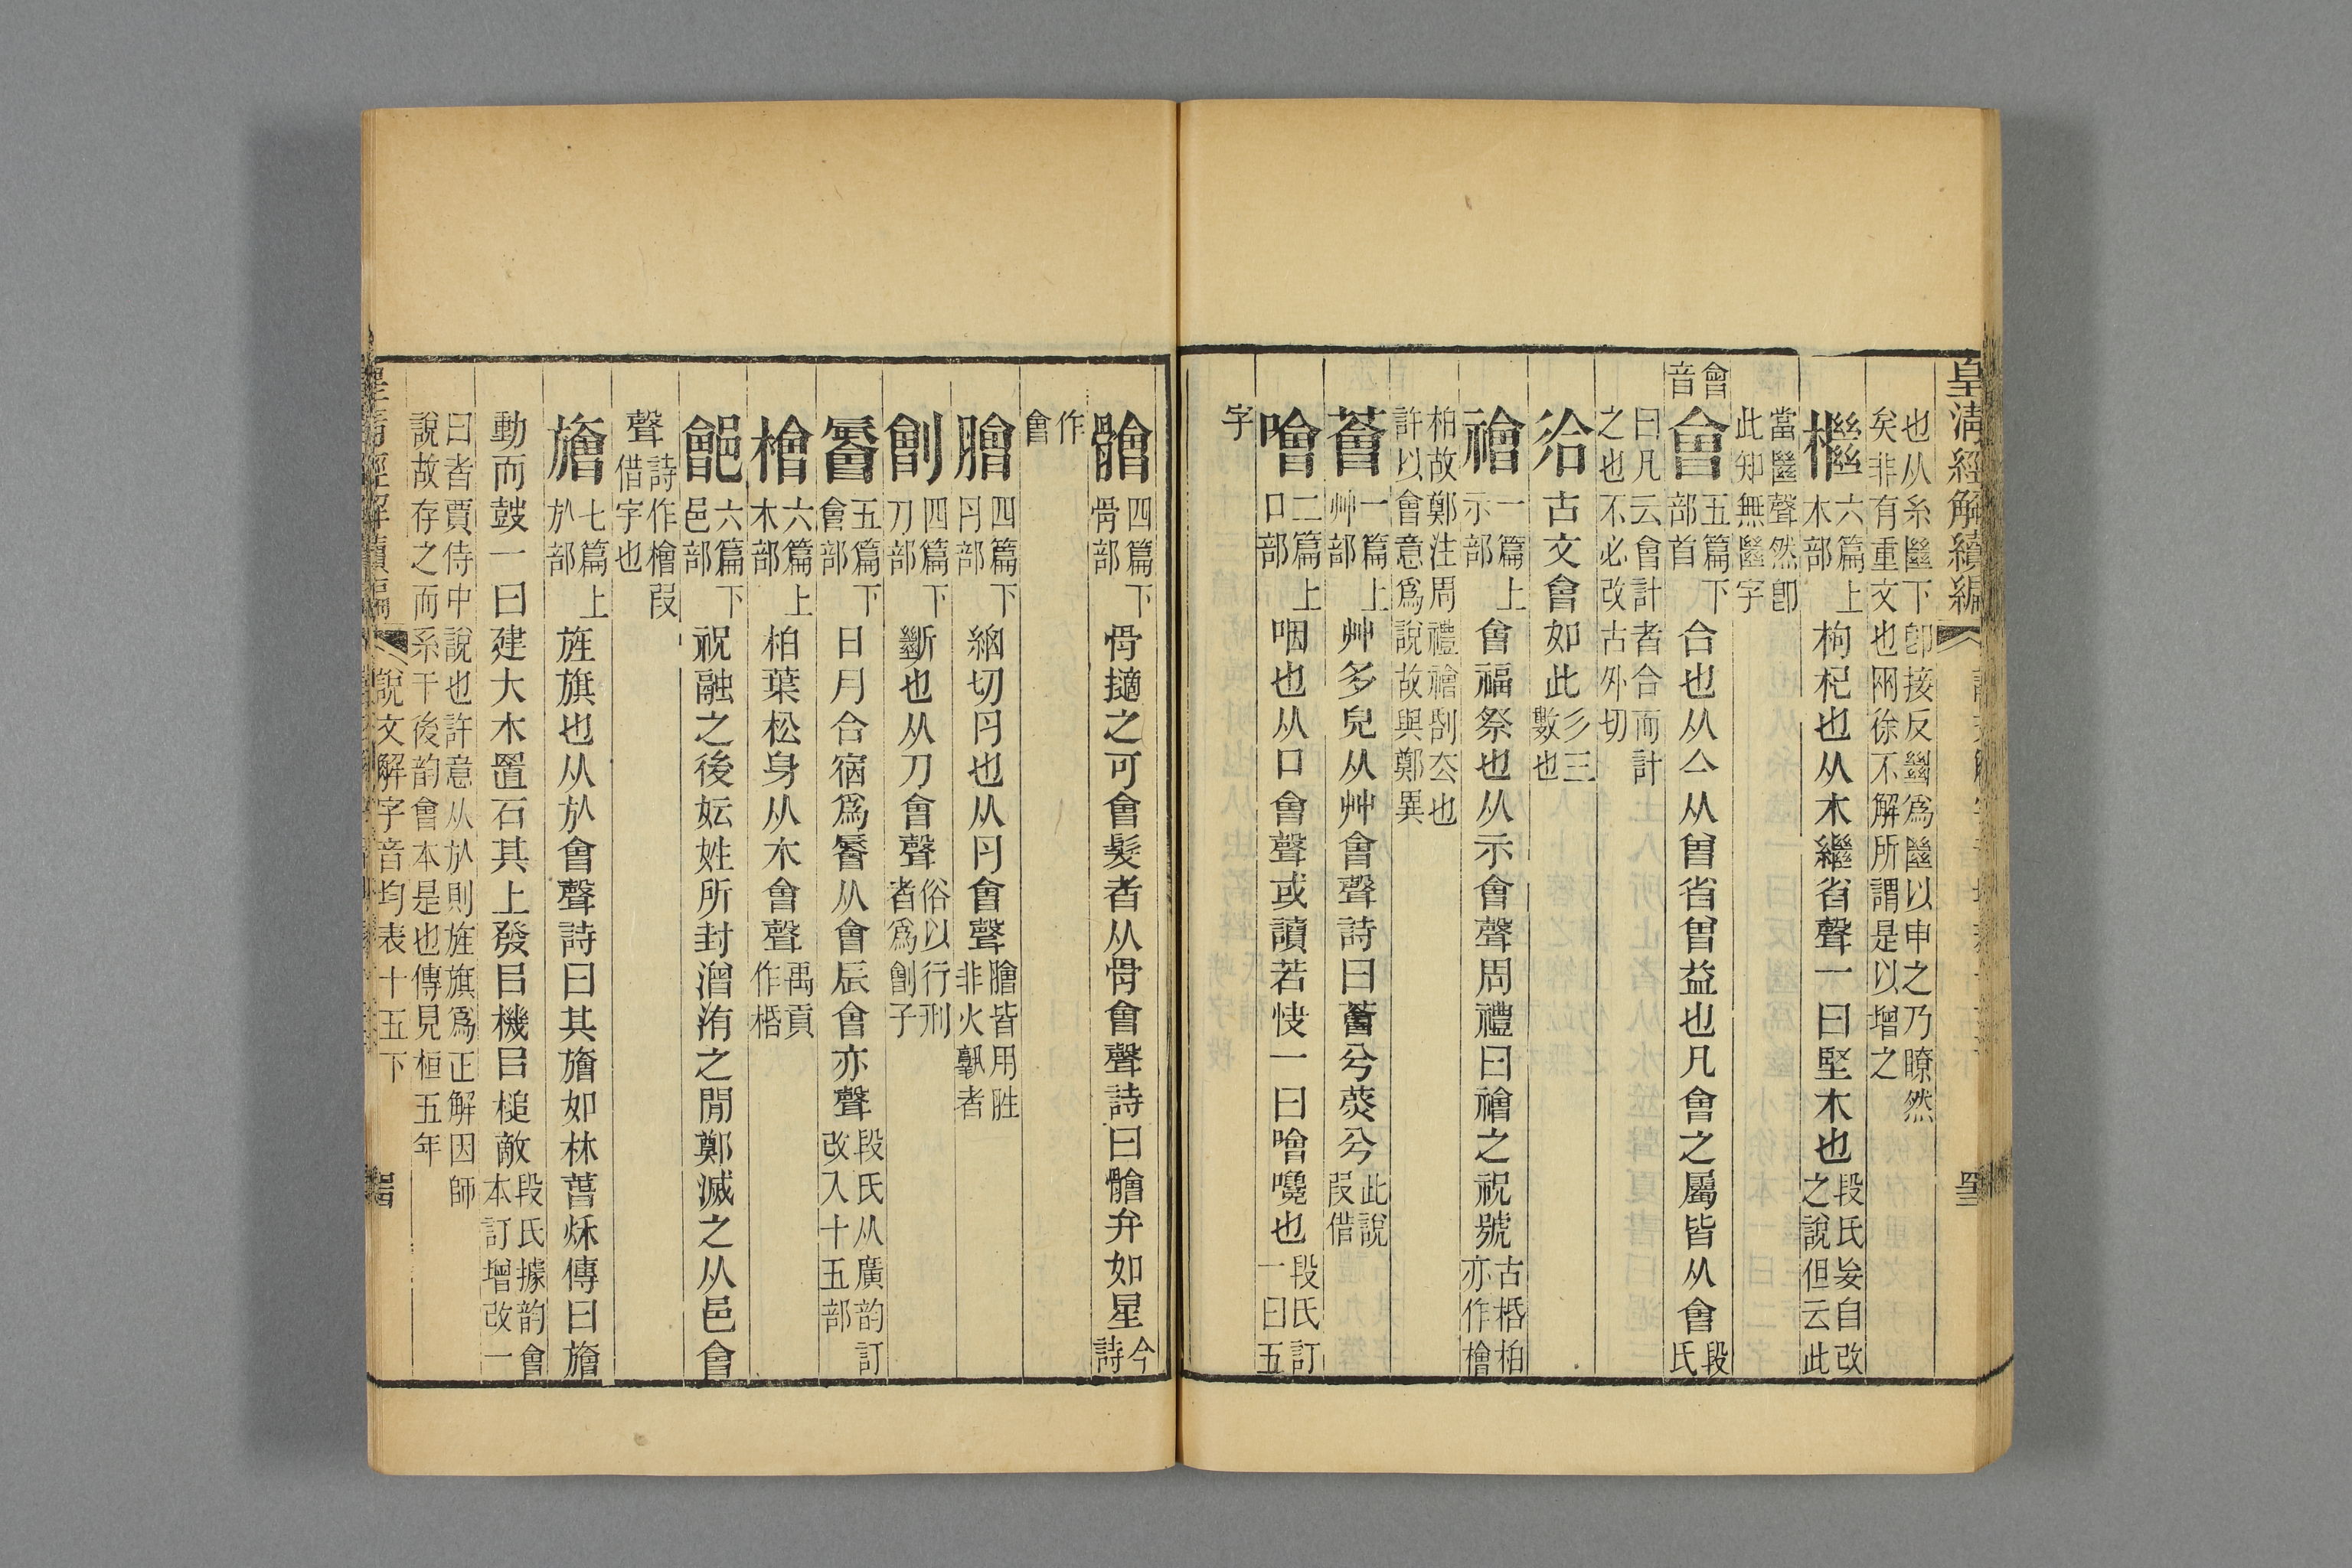 皇清經解續編
也从糸㡭下卽接反㡭爲㡭以申之乃瞭然
矣非有重文也兩徐不解所謂是以增之
檵六篇上木部枸杞也从木繼省聲一曰堅木也段氏妄自改之說但云此
當㡭聲然卽
此知無㡭字
會音
會五篇下部首合也从亼从曾省曾益也凡會之屬皆从會段氏
曰凡云會計者合而計
之也不必改古外切
㣛古文會如此彡三數也
禬一篇上示部會福祭也从示會聲周禮曰禬之祝號古桰柏亦作檜
柏故鄭注周禮禬刮去也
許以會意爲說故與鄭異
薈一篇上艸部艸多皃从艸會聲詩曰薈兮蔚兮此說叚借
噲二篇上口部咽也从口會聲或讀若快一曰噲嚵也段氏訂一曰五
字
䯤四篇下骨部骨擿之可會髮者从骨會聲詩曰䯤弁如星今詩
作會
膾四篇下肉部細切肉也从肉會聲膾皆用胜非火孰者
劊四篇下刀部斷也从刀會聲俗以行刑者爲劊子
䢈五篇下會部日月合宿爲䢈从會辰會亦聲段氏从廣韵訂改入十五部
檜六篇上木部柏葉松身从木會聲禹貢作桰
鄶六篇下邑部祝融之後妘姓所封潧洧之閒鄭滅之从邑會
聲詩作檜叚借字也
旝七篇上㫃部旌旗也从㫃會聲詩曰其旝如林春秋傳曰旝
動而鼓一曰建大木置石其上發㠯機㠯槌敵段氏據韵會本訂增改一
曰者賈侍中說也許意从㫃則旌旗爲正解因師
說故存之而系于後韵會本是也傳見桓五年
說文解字音均表十五下